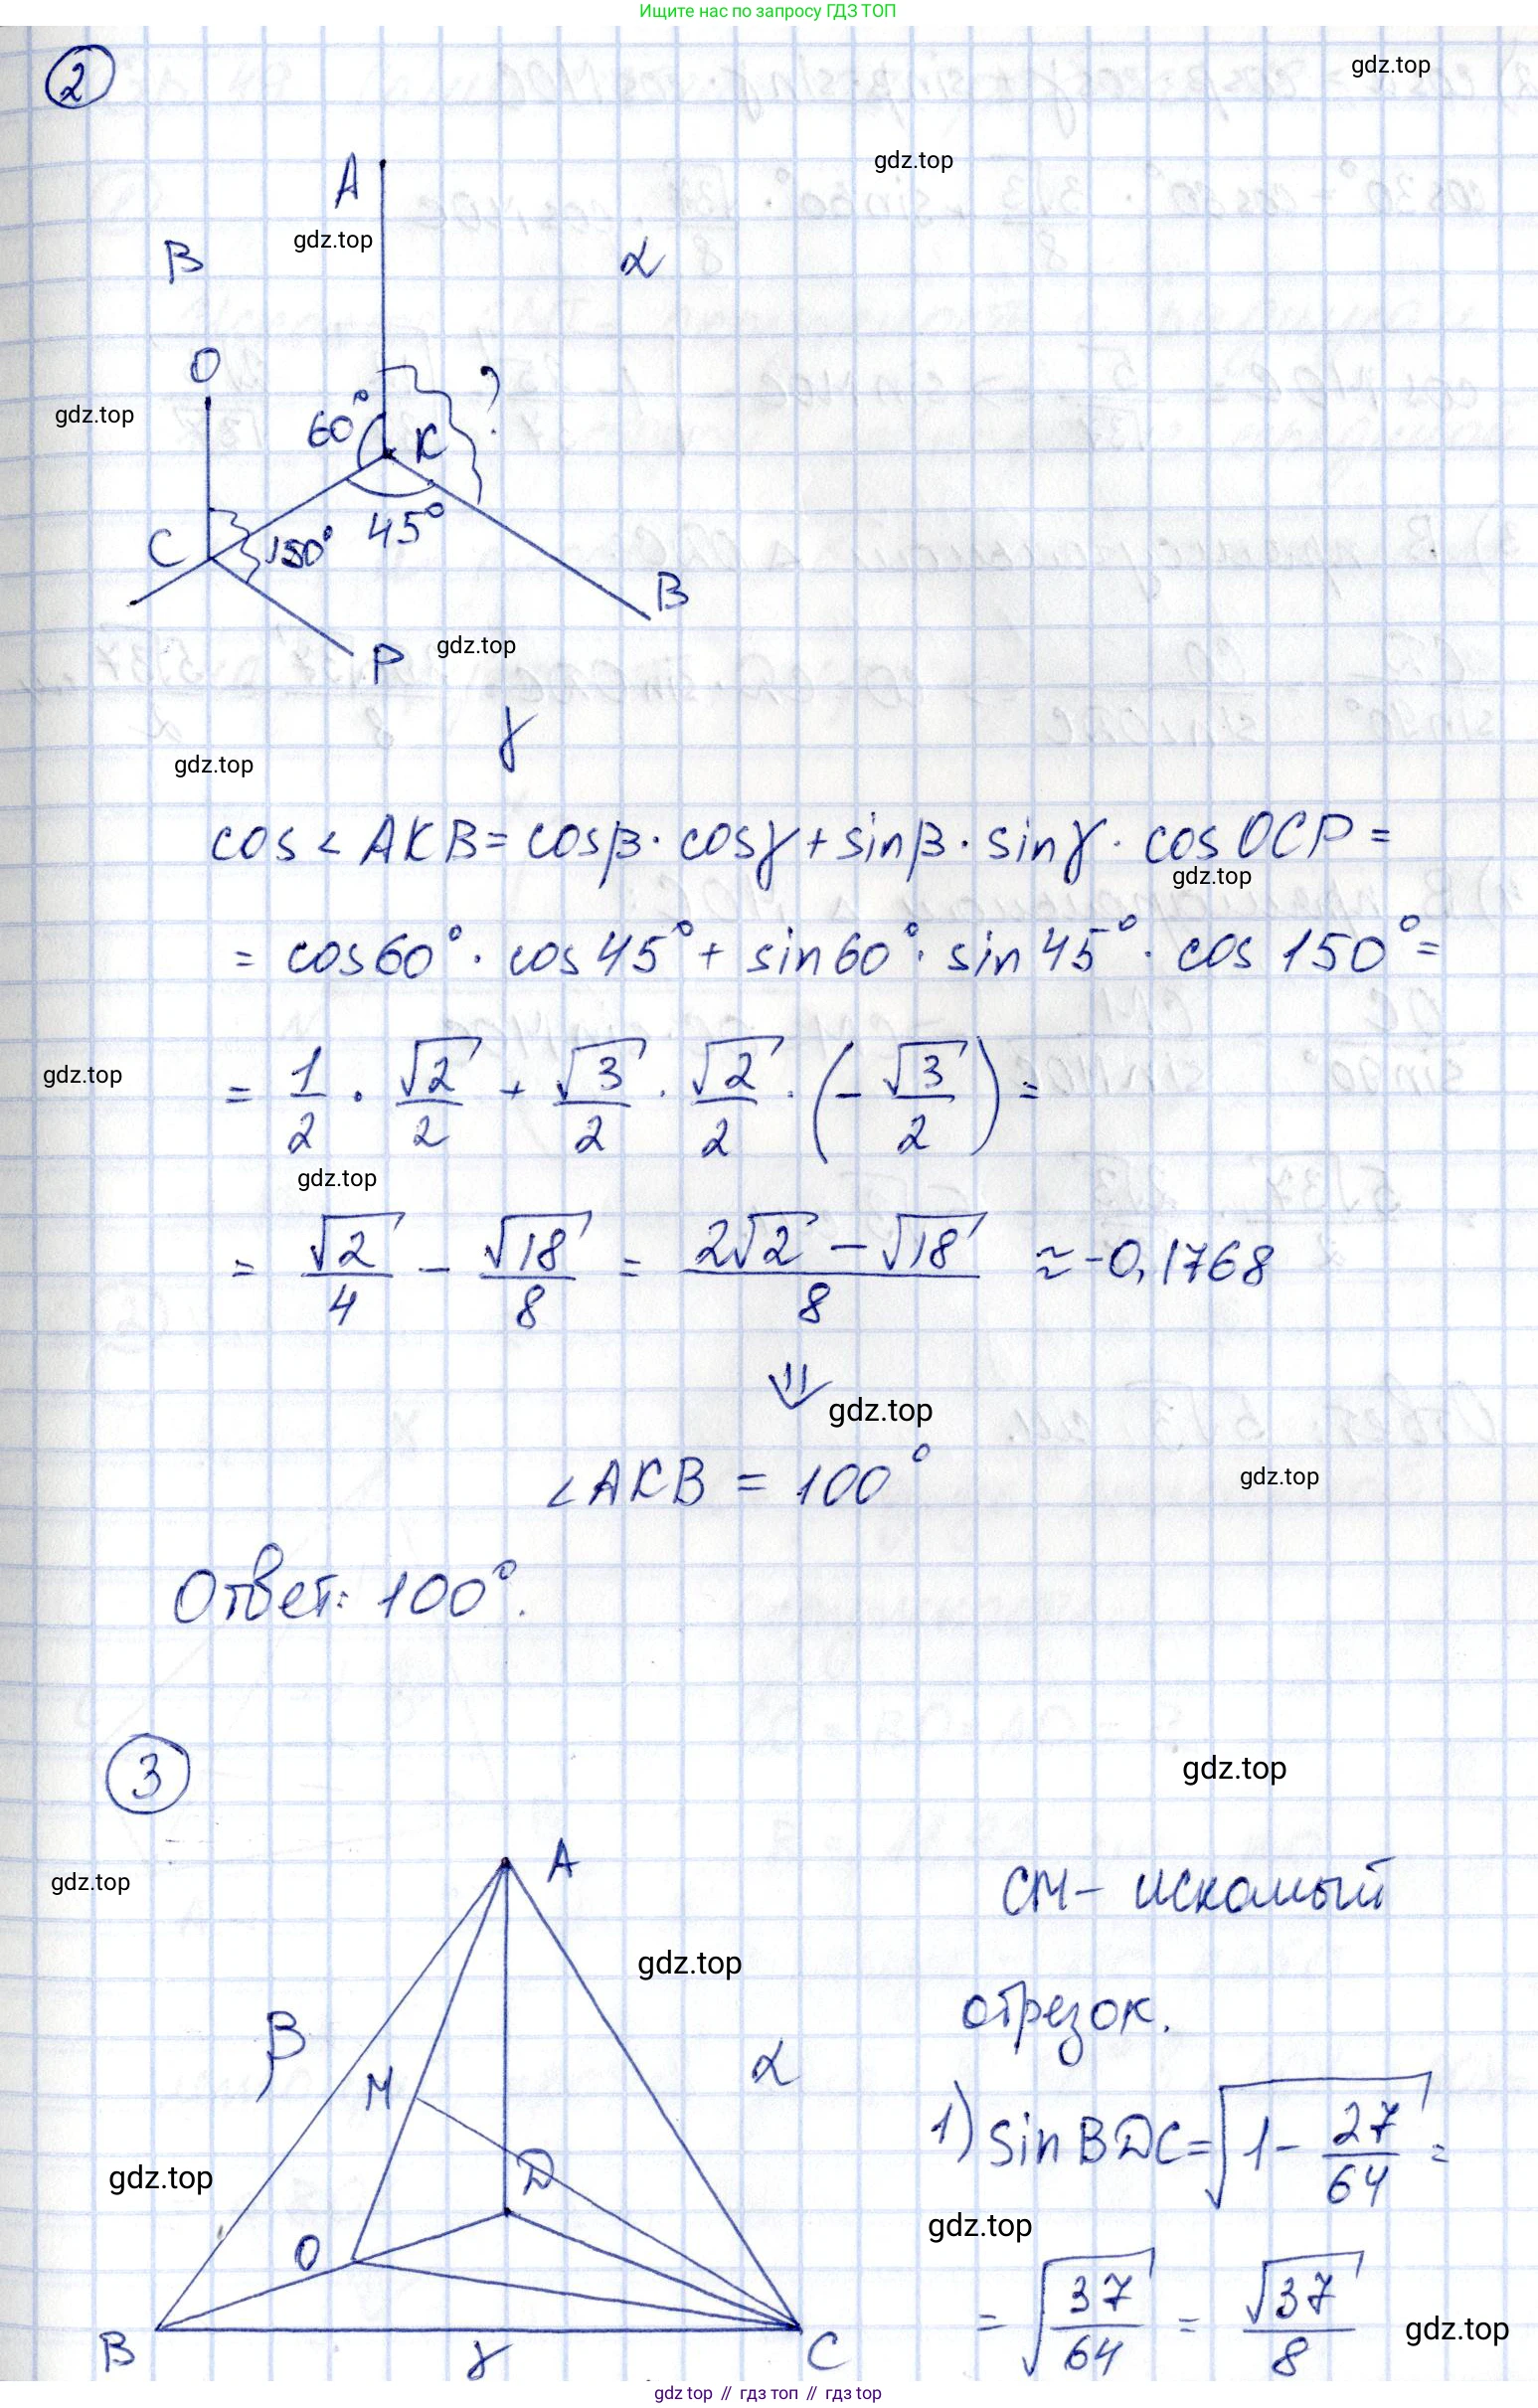 Ищите нас по запросу ГДЗ ТОП
2
gdz.top
gdz.top
A
gdz.top
β
α
O
gdz.top
60°
K
?
C
150°
45°
B
P
gdz.top
γ
gdz.top
cos∠AKB = cosβ · cosγ + sinβ · sinγ · cosOCP =
gdz.top
= cos60° · cos45° + sin60° · sin45° · cos150° =
gdz.top
= 1/2 · √2/2 + √3/2 · √2/2 · (-√3/2) =
gdz.top
= √2/4 - √18/8 = (2√2 - √18)/8 ≈ -0,1768
⇓
gdz.top
∠AKB = 100°
gdz.top
Ответ: 100°.
3
gdz.top
A
gdz.top
CM - искомый
gdz.top
отрезок.
β
α
M
1) sinBDC = √(1 - 27/64) =
D
gdz.top
gdz.top
O
= √(37/64) = √37/8
gdz.top
B
γ
C
gdz top // гдз топ // гдз.top